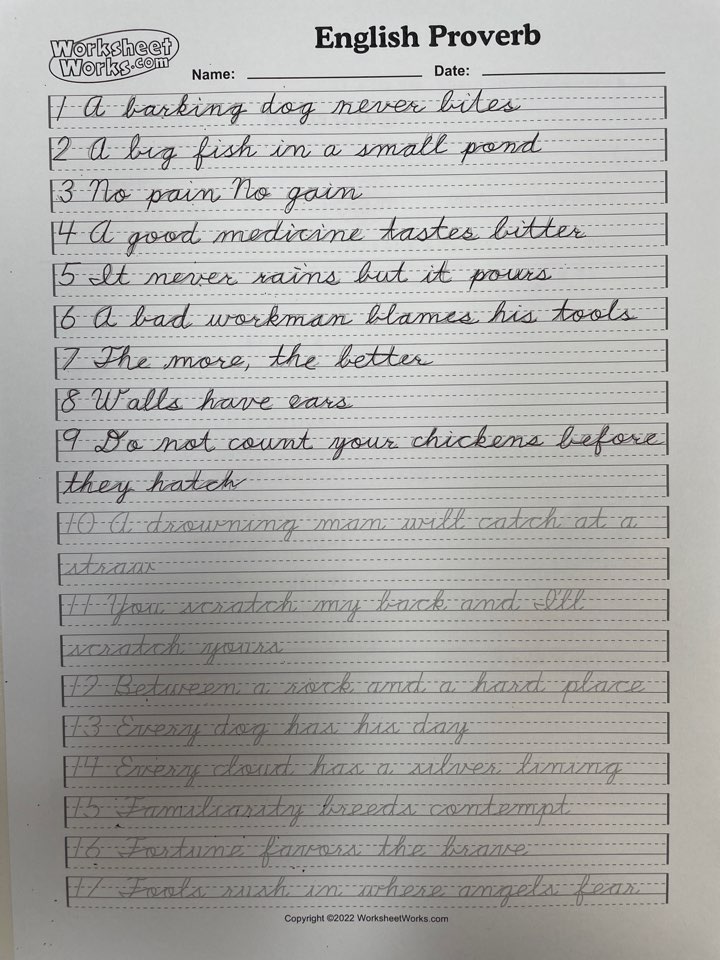 Worksheet
Works.com
English Proverb
Name: Date:
1 A barking dog never bites
2 A big fish in a small pond
3 No pain No gain
4 A good medicine tastes bitter
5 It never rains but it pours
6 A bad workman blames his tools
7 The more, the better
8 Walls have ears
9 Do not count your chickens before
they hatch
10 A drowning man will catch at a
straw
11 You scratch my back and I'll
scratch yours
12 Between a rock and a hard place
13 Every dog has his day
14 Every cloud has a silver lining
15 Familiarity breeds contempt
16 Fortune favors the brave
17 Fools rush in where angels fear
Copyright ©2022 WorksheetWorks.com